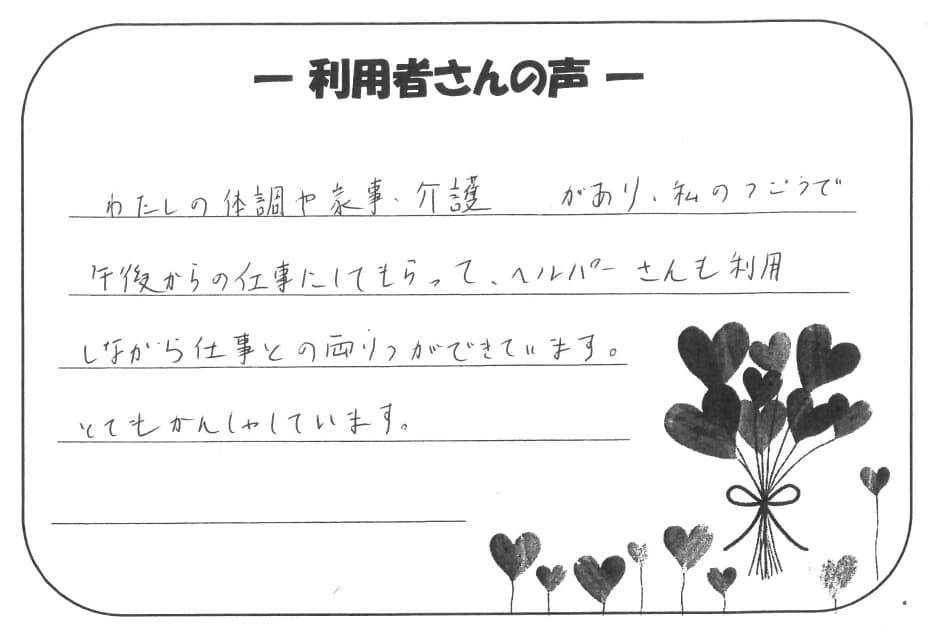 ー 利用者さんの声 ー
わたしの体調や家事、介護 があり、私のつごうで
午後からの仕事にしてもらって、ヘルパーさんも利用
しながら仕事との両りつができています。
とてもかんしゃしています。